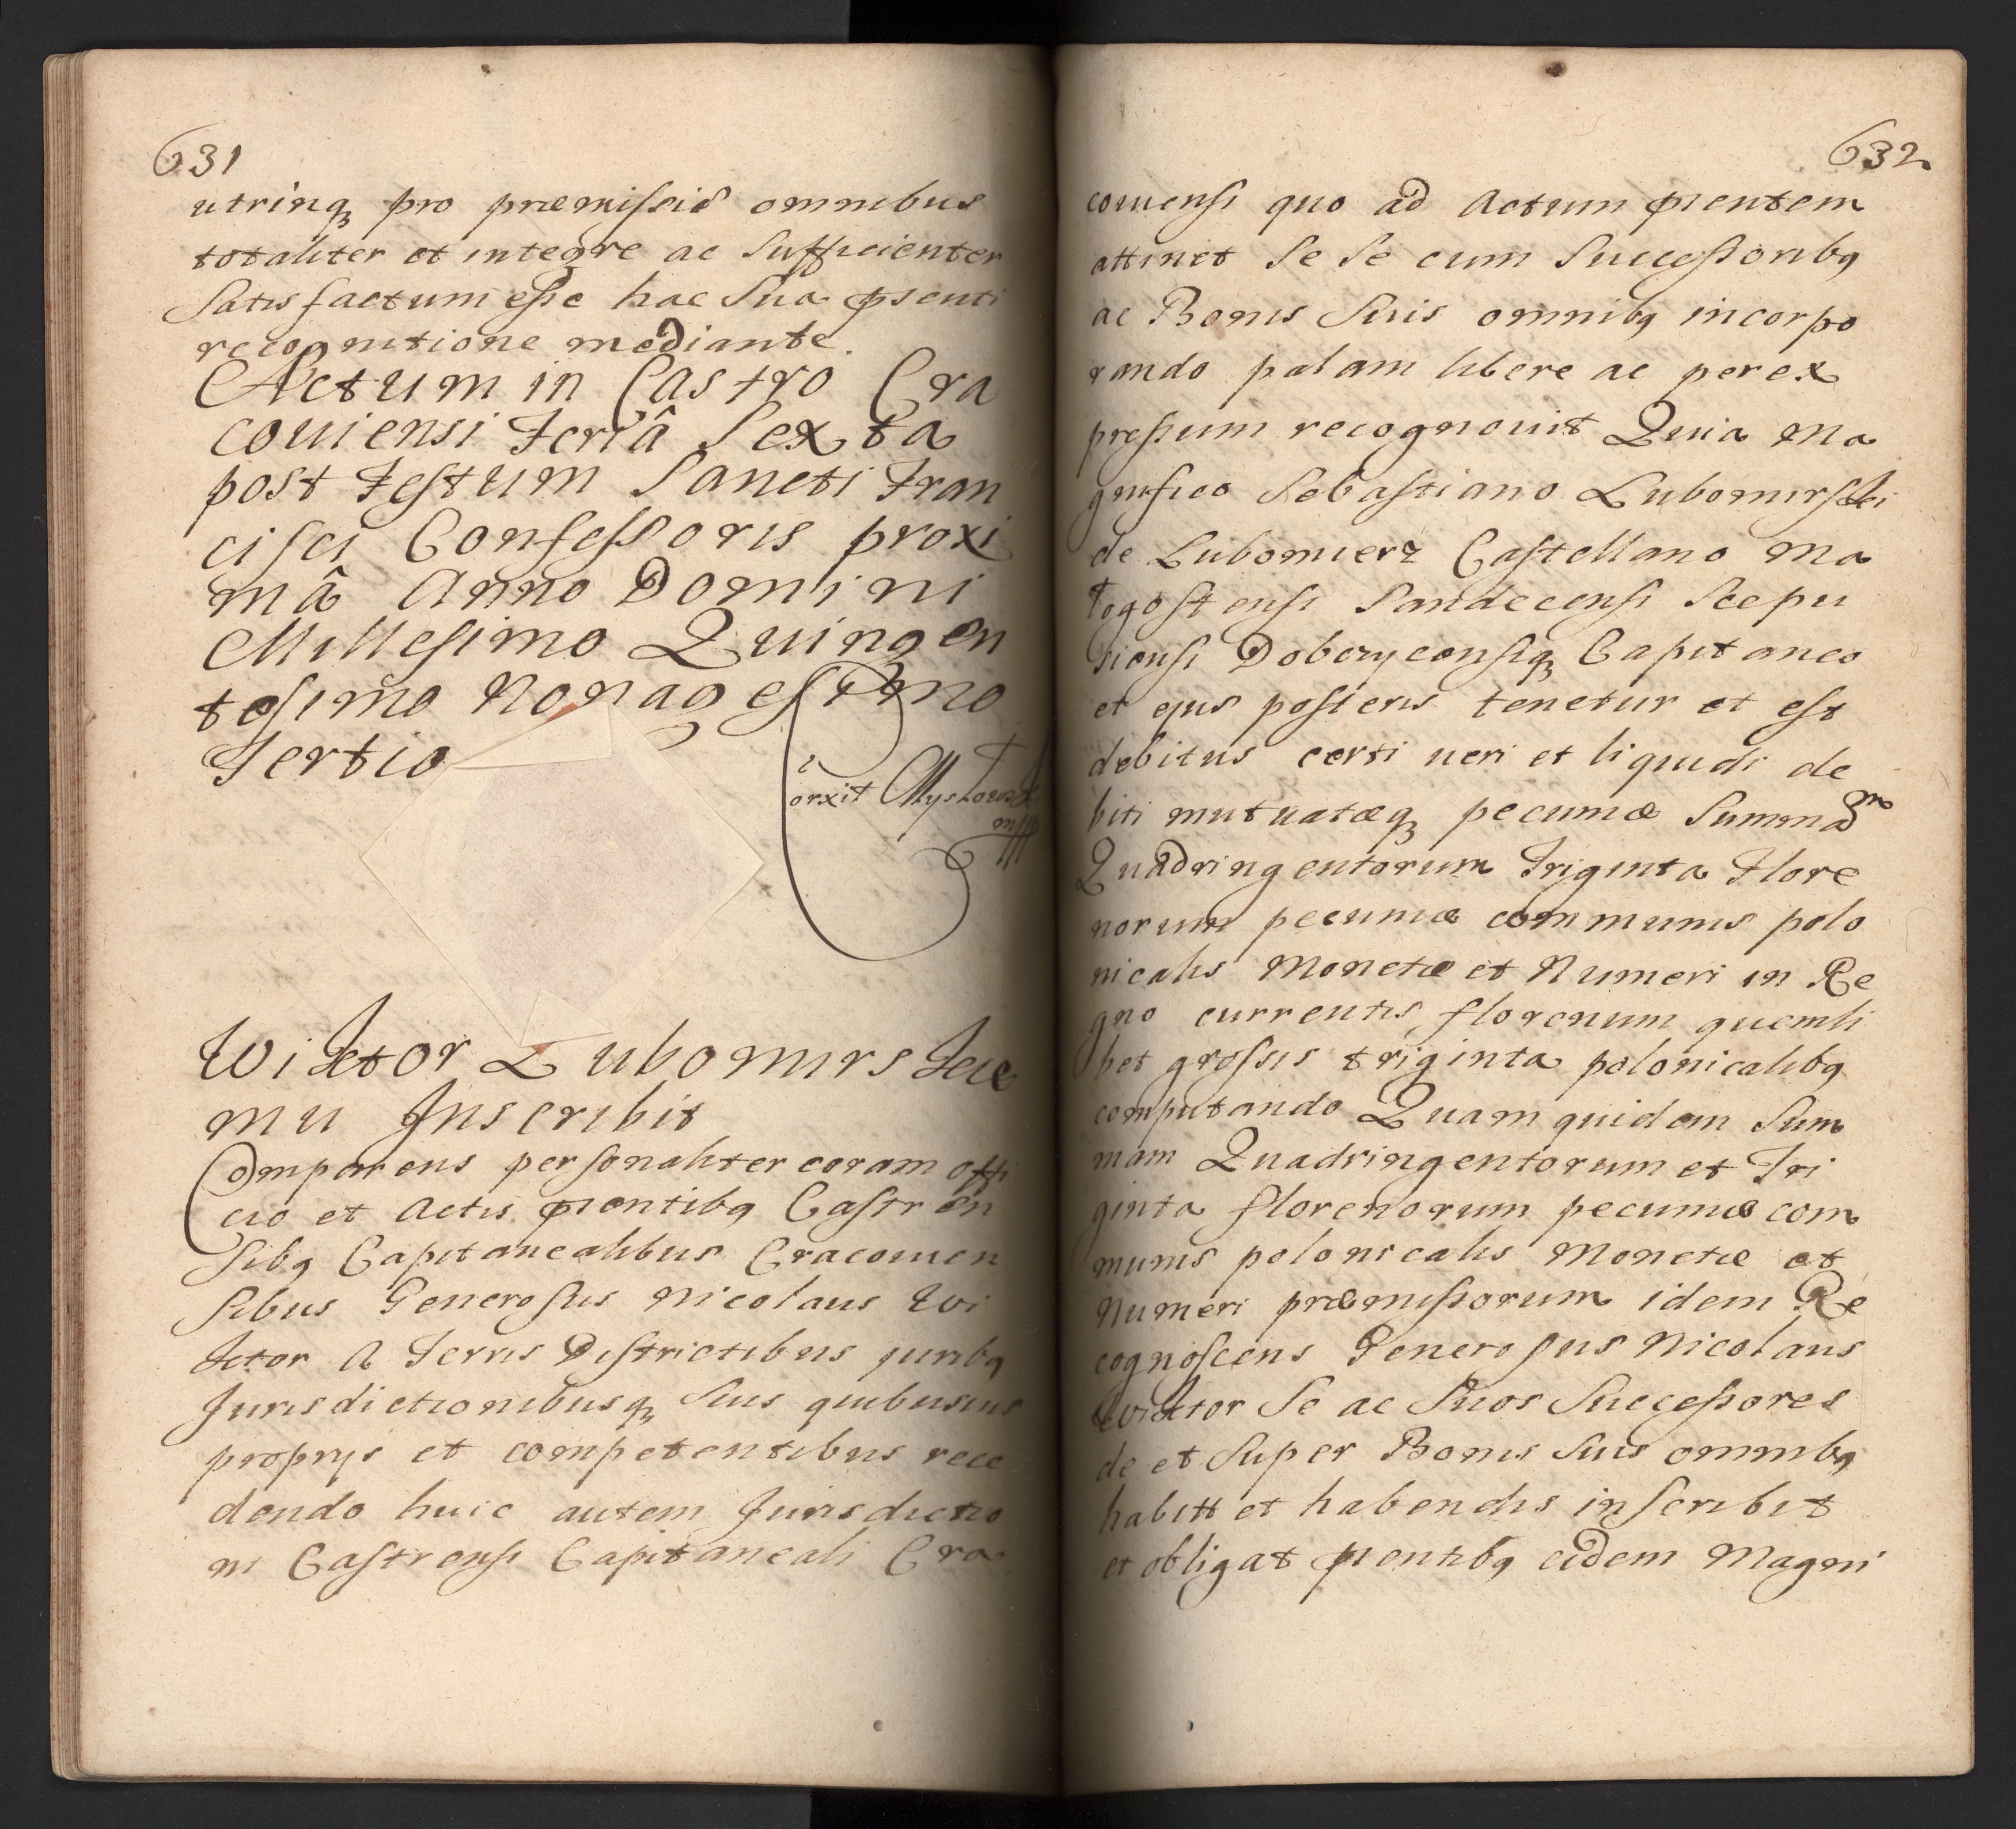 631
utrinq pro præmissis omnibus
totaliter et integre ac Sufficienter
Satisfactum esse hac Sua pnsenti
recognitione mediante.
Actum in Castro Cra
couiensi Feriâ Sexta
post Festum Sancti Fran
cisci Confessoris proxi
mâ Anno Domini
Millesimo Quingen
tesimo Nonagesimo
Tertio
Corxit Myskowski
mpp
Wiktor Lubomirskie
mu Inscribit
Comparens personaliter coram offi
cio et Actis pntibq Castren
sibq Capitanealibus Cracouien
sibus Generosus Nicolaus Wi
ktor A Terris Districtibus juribq
Jurisdictionibusq Suis quibusuis
proprijs et competentibus rece
dendo huic autem Jurisdictio
ni Castrensi Capitaneali Cra
632
couiensi quo ad Actum pntem
attinet Se Se cum Successoribq
ac Bonis Suis omnibq incorpo
rando palam libere ac perex
pressum recognouit Quia Ma
gnifico Sebastiano Lubomirski
de Lubomierz Castellano Ma
logostensi Sandecensi Scepu
siensi Dobczyconsiq Capitaneo
et ejus posteris tenetur et est
debitus certi ueri et liquidi de
biti mutuatæq pecuniæ Summam
Quadringentorum Triginta Flore
norum pecuniæ communis polo
nicalis Monetæ et Numeri in Re
gno currentis, florenum quemli
bet grossis triginta polonicalibq
computando Quam quidem Sum
mam Quadringentorum et Tri
ginta florenorum pecuniæ com
munis polonicalis Monetæ et
Numeri præmissorum idem Re
cognoscens Generosus Nicolaus
Wiktor Se ac Suos Successores
de et Super Bonis Suis omnibq
habitt et habendis inscribit
et obligat pntibq eidem Magni